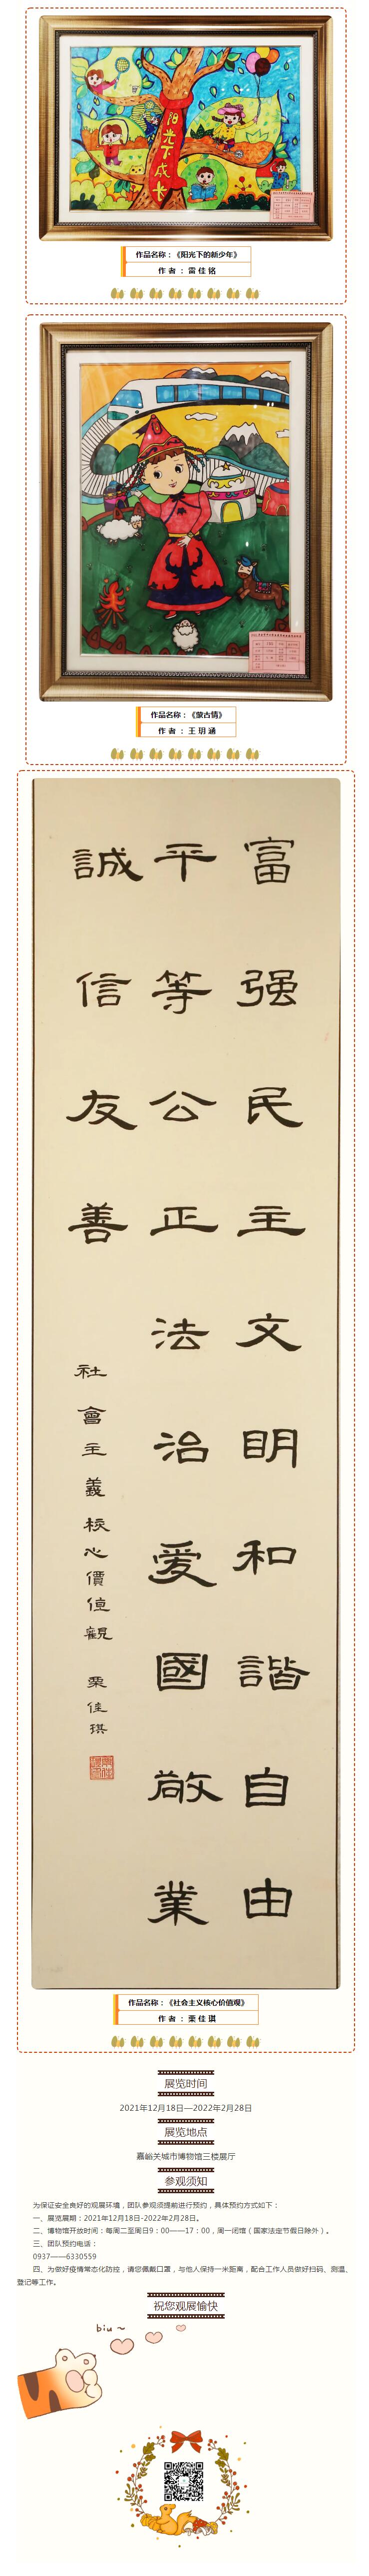 阳光下成长
作品名称：《阳光下的新少年》
作者：雷佳铭
作品名称：《蒙古情》
作者：王玥涵
富强民主文明和谐自由
平等公正法治爱國敬業
誠信友善
社會主義核心價值觀
栗佳琪
作品名称：《社会主义核心价值观》
作者：栗佳琪
展览时间
2021年12月18日—2022年2月28日
展览地点
嘉峪关城市博物馆三楼展厅
参观须知
为保证安全良好的观展环境，团队参观须提前进行预约，具体预约方式如下：
一、展览展期：2021年12月18日-2022年2月28日。
二、博物馆开放时间：每周二至周日9：00——17：00，周一闭馆（国家法定节假日除外）。
三、团队预约电话：
0937——6330559
四、为做好疫情常态化防控，请您佩戴口罩，与他人保持一米距离，配合工作人员做好扫码、测温、
登记等工作。
祝您观展愉快
biu～